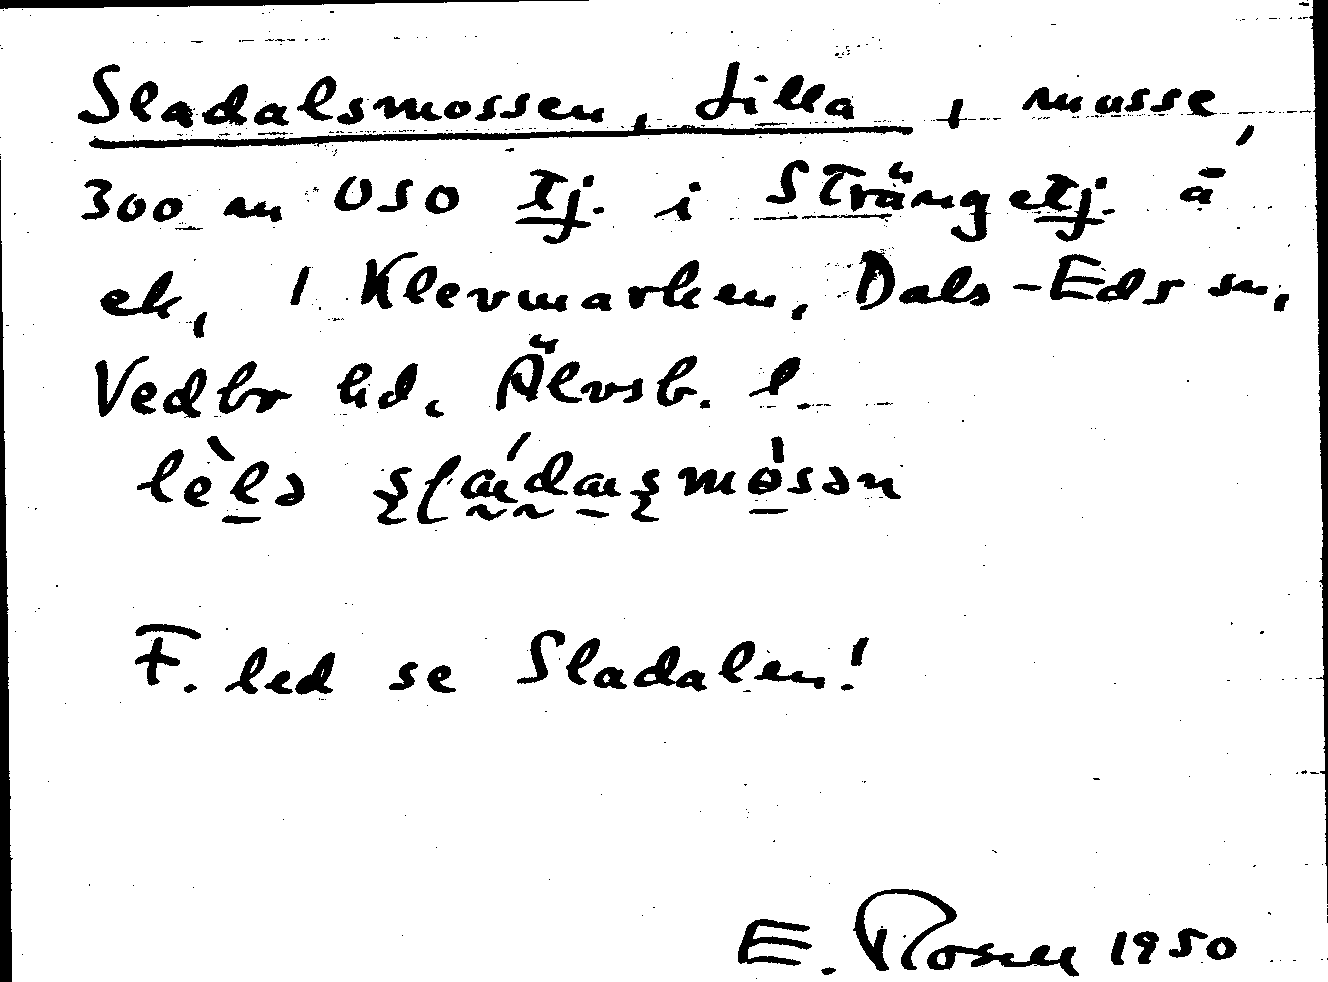 Sladalsmossen, Lilla, mosse,
300 m OSO tj. i Strängetj. å
ek, 1 Klevmarken, Dals-Eds sn,
Vedbr hd. Älvsb. l.
F. led se Sladalen!
E. Rosell 1950